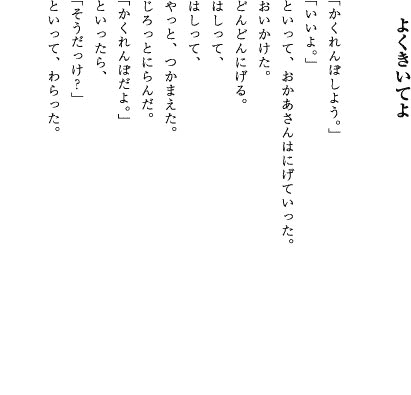 よくきいてよ
「かくれんぼしよう。」
「いいよ。」
といって、おかあさんはにげていった。
おいかけた。
どんどんにげる。
はしって、
はしって、
やっと、つかまえた。
じろっとにらんだ。
「かくれんぼだよ。」
といったら、
「そうだっけ？」
といって、わらった。